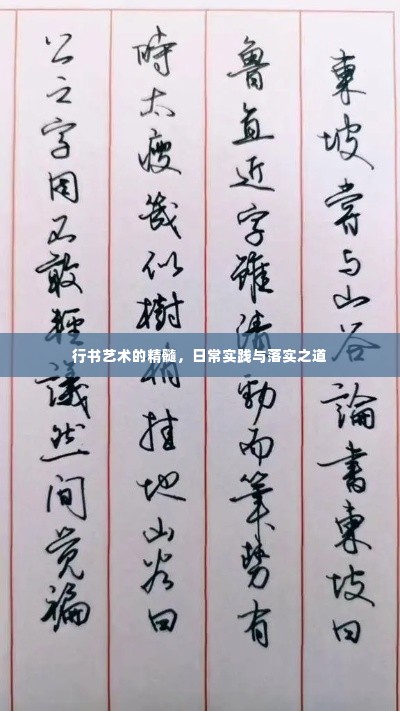 東坡嘗与山谷論書東坡曰
魯直近字雖清勁而筆勢有
時太瘦幾似樹梢挂地山谷曰
公之字固不敢輕議然间觉褊
行书艺术的精髓，日常实践与落实之道